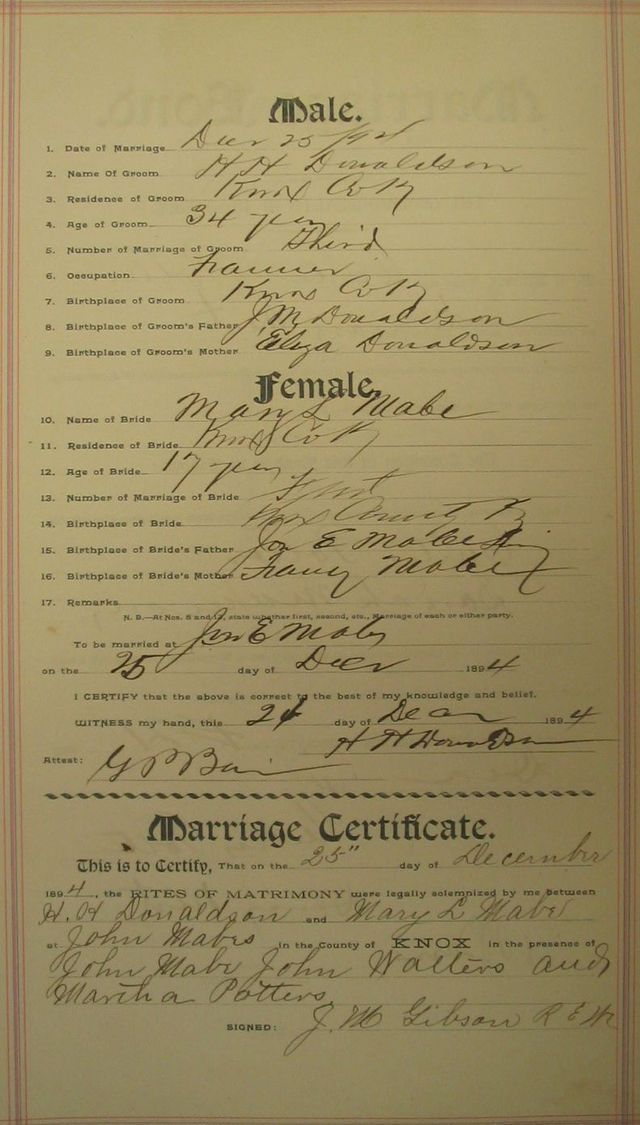 Male.
1. Date of Marriage Decr 25 1894
2. Name Of Groom H H Donaldson
3. Residence of Groom Knox Co Ky
4. Age of Groom 34 years
5. Number of Marriage of Groom Third
6. Occupation Farmer
7. Birthplace of Groom Knox Co Ky
8. Birthplace of Groom's Father J M Donaldson
9. Birthplace of Groom's Mother Eliza Donaldson
Female.
10. Name of Bride Mary L Mabe
11. Residence of Bride Knox Co Ky
12. Age of Bride 17 years
13. Number of Marriage of Bride First
14. Birthplace of Bride Knox County Ky
15. Birthplace of Bride's Father E Mabe
16. Birthplace of Bride's Mother Mabe
17. Remarks
N. B.—At Nos. 5 and 13, state whether first, second, etc., Marriage of each or either party.
To be married at E Mabes
on the 25 day of Decr 1894
I CERTIFY that the above is correct to the best of my knowledge and belief.
WITNESS my hand, this 24 day of Decr 1894
H H Donaldson
Attest: G P
Marriage Certificate.
This is to Certify, That on the 25" day of December
1894, the RITES OF MATRIMONY were legally solemnized by me between
H. H Donaldson and Mary L Mabe
at John Mabes in the County of KNOX in the presence of
John Mabe John Walters and
Martha Potters
SIGNED: J. M Gibson